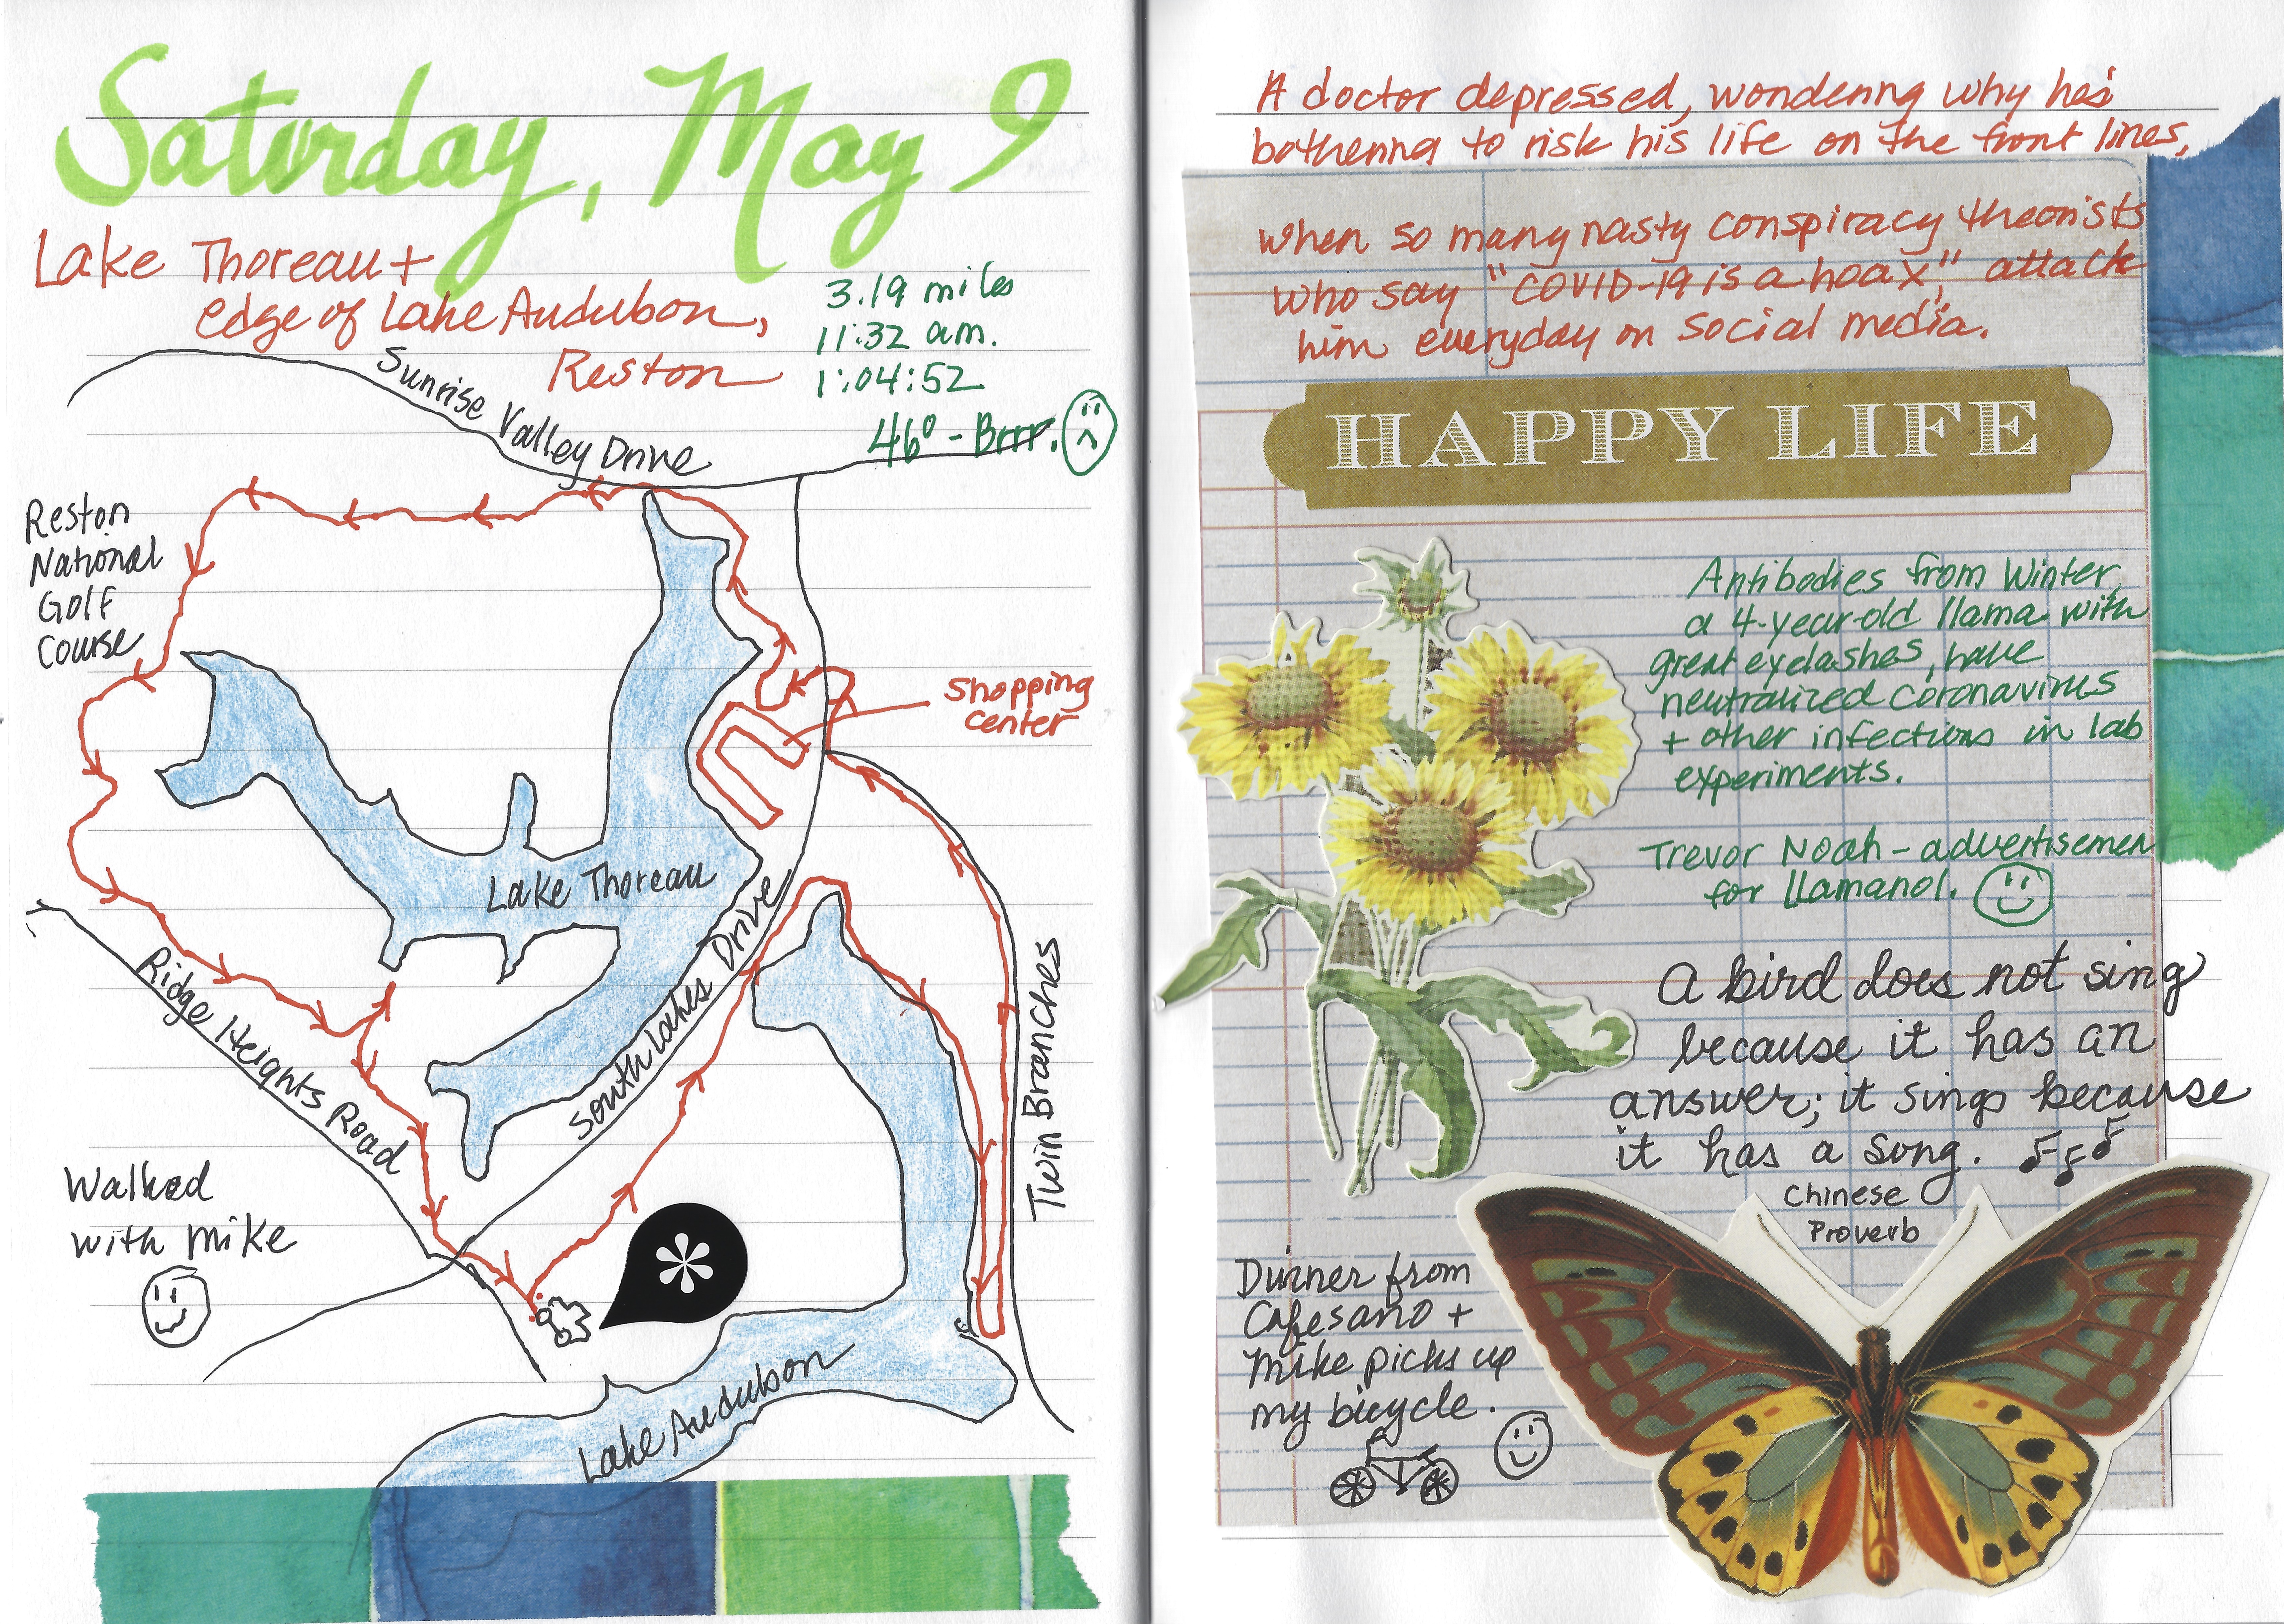 Saturday, May 9
Lake Thoreau +
edge of Lake Audubon,
Reston
3.19 miles
11:32 am.
1:04:52
46° - Brrr.
Sunrise Valley Drive
Reston
National
Golf
Course
Shopping
center
Lake Thoreau
South Lakes Drive
Ridge Heights Road
Twin Branches
Walked
with Mike
Lake Audubon
A doctor depressed, wondering why he's
bothering to risk his life on the front lines,
when so many nasty conspiracy theorists
who say "COVID-19 is a hoax," attack
him everyday on social media.
HAPPY LIFE
Antibodies from Winter,
a 4-year-old llama with
great eyelashes, have
neutralized coronavirus
+ other infections in lab
experiments.
Trevor Noah - advertisemen
for Llamanol.
A bird does not sing
because it has an
answer; it sings because
it has a song.
Chinese
Proverb
Dinner from
Cafesano +
Mike picks up
my bicycle.